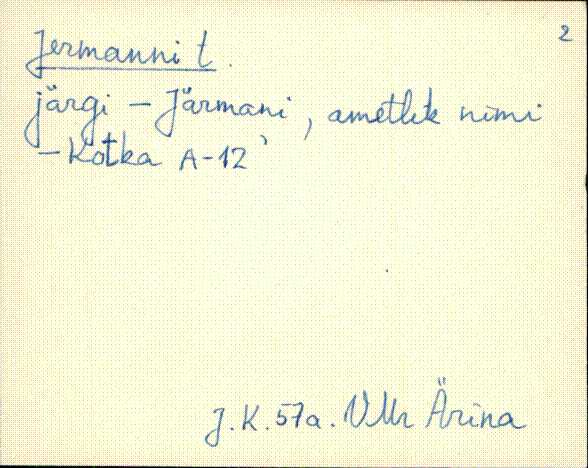 2
Jermanni t.
järgi – Järmani, ametlik nimi
– Kotka A-12
J.K. 57a. VMr Ärina